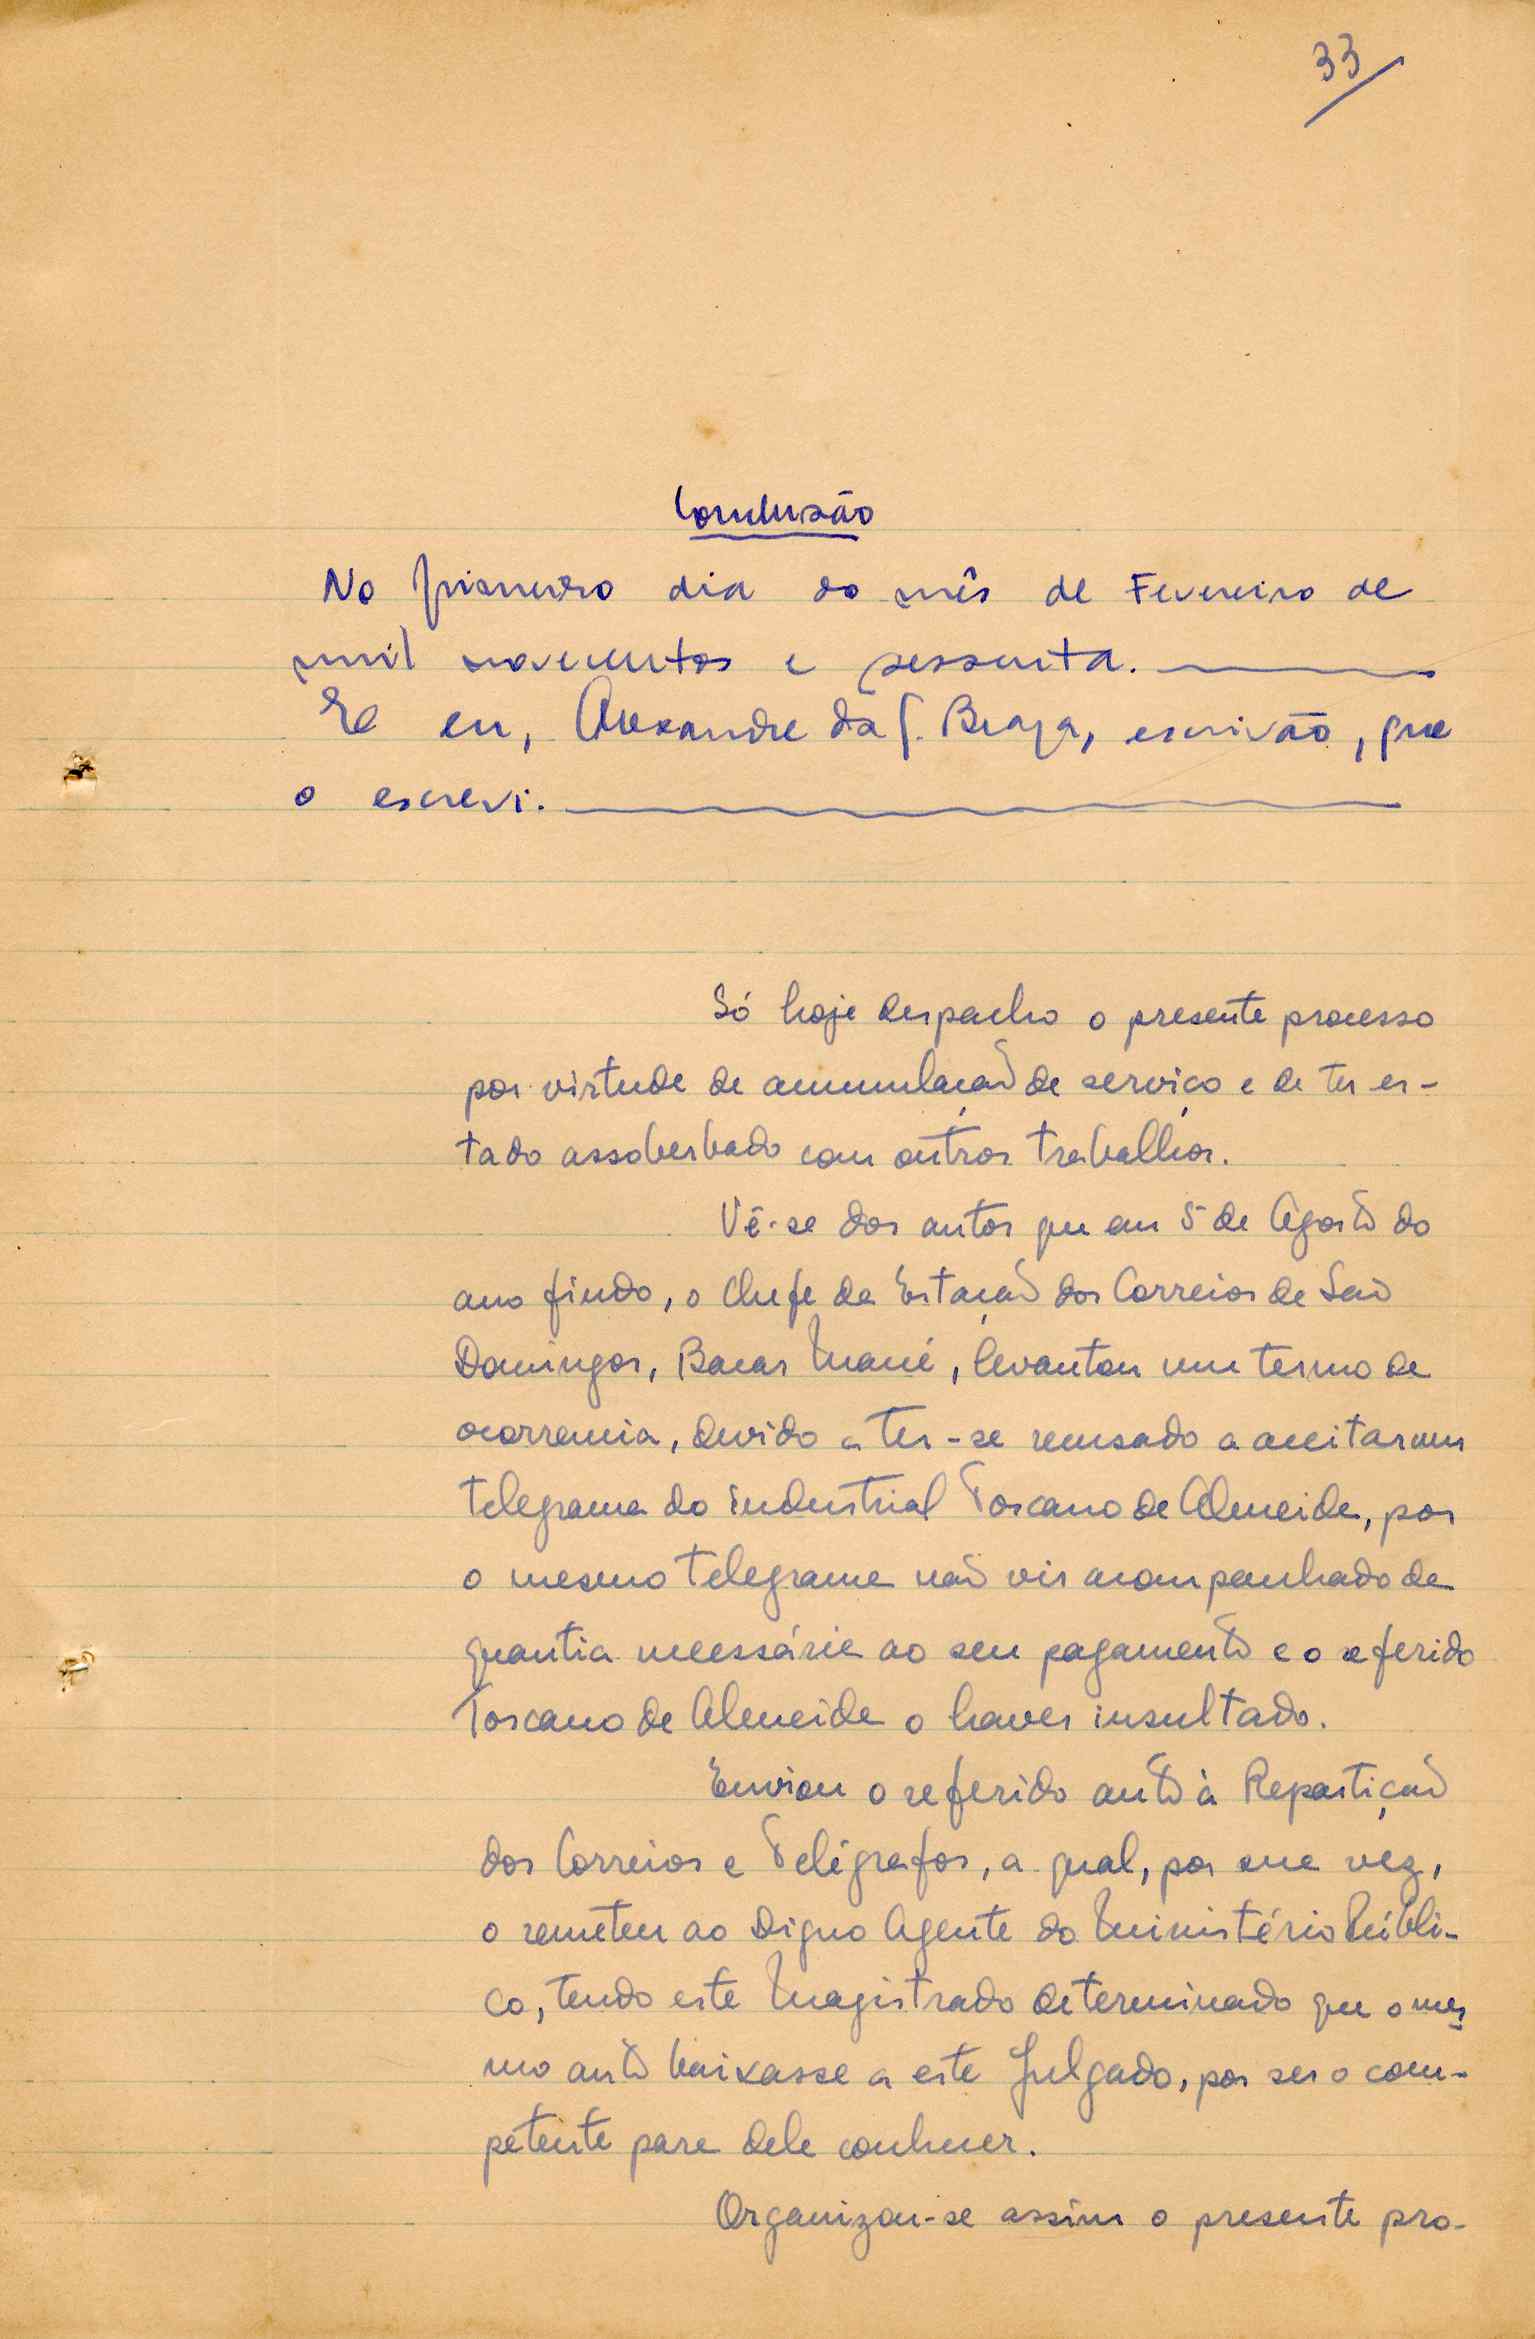 33
Conclusão
No primeiro dia do mês de Fevereiro de
mil novecentos e sessenta.
E eu, Alexandre da S. Braga, escrivão, que
o escrevi.
Só hoje despacho o presente processo
por virtude de acumulação de serviço e de ter es-
tado assoberbado com outros trabalhos.
Vê-se dos autos que em 5 de Agosto do
ano findo, o Chefe da Estação dos Correios de São
Domingos, Bacar Mané, levantou um termo de
ocorrencia, devido a ter-se recusado a aceitar um
telegrama do industrial Toscano de Almeida, por
o mesmo telegrama não vir acompanhado da
quantia necessária ao seu pagamento e o referido
Toscano de Almeida o haver insultado.
Enviou o referido auto à Repartição
dos Correios e Telégrafos, a qual, por sua vez,
o remeteu ao Digno Agente do Ministério Públi-
co, tendo este Magistrado determinado que o mes
mo auto baixasse a este Julgado, por ser o com-
petente para dele conhecer.
Organizou-se assim o presente pro-